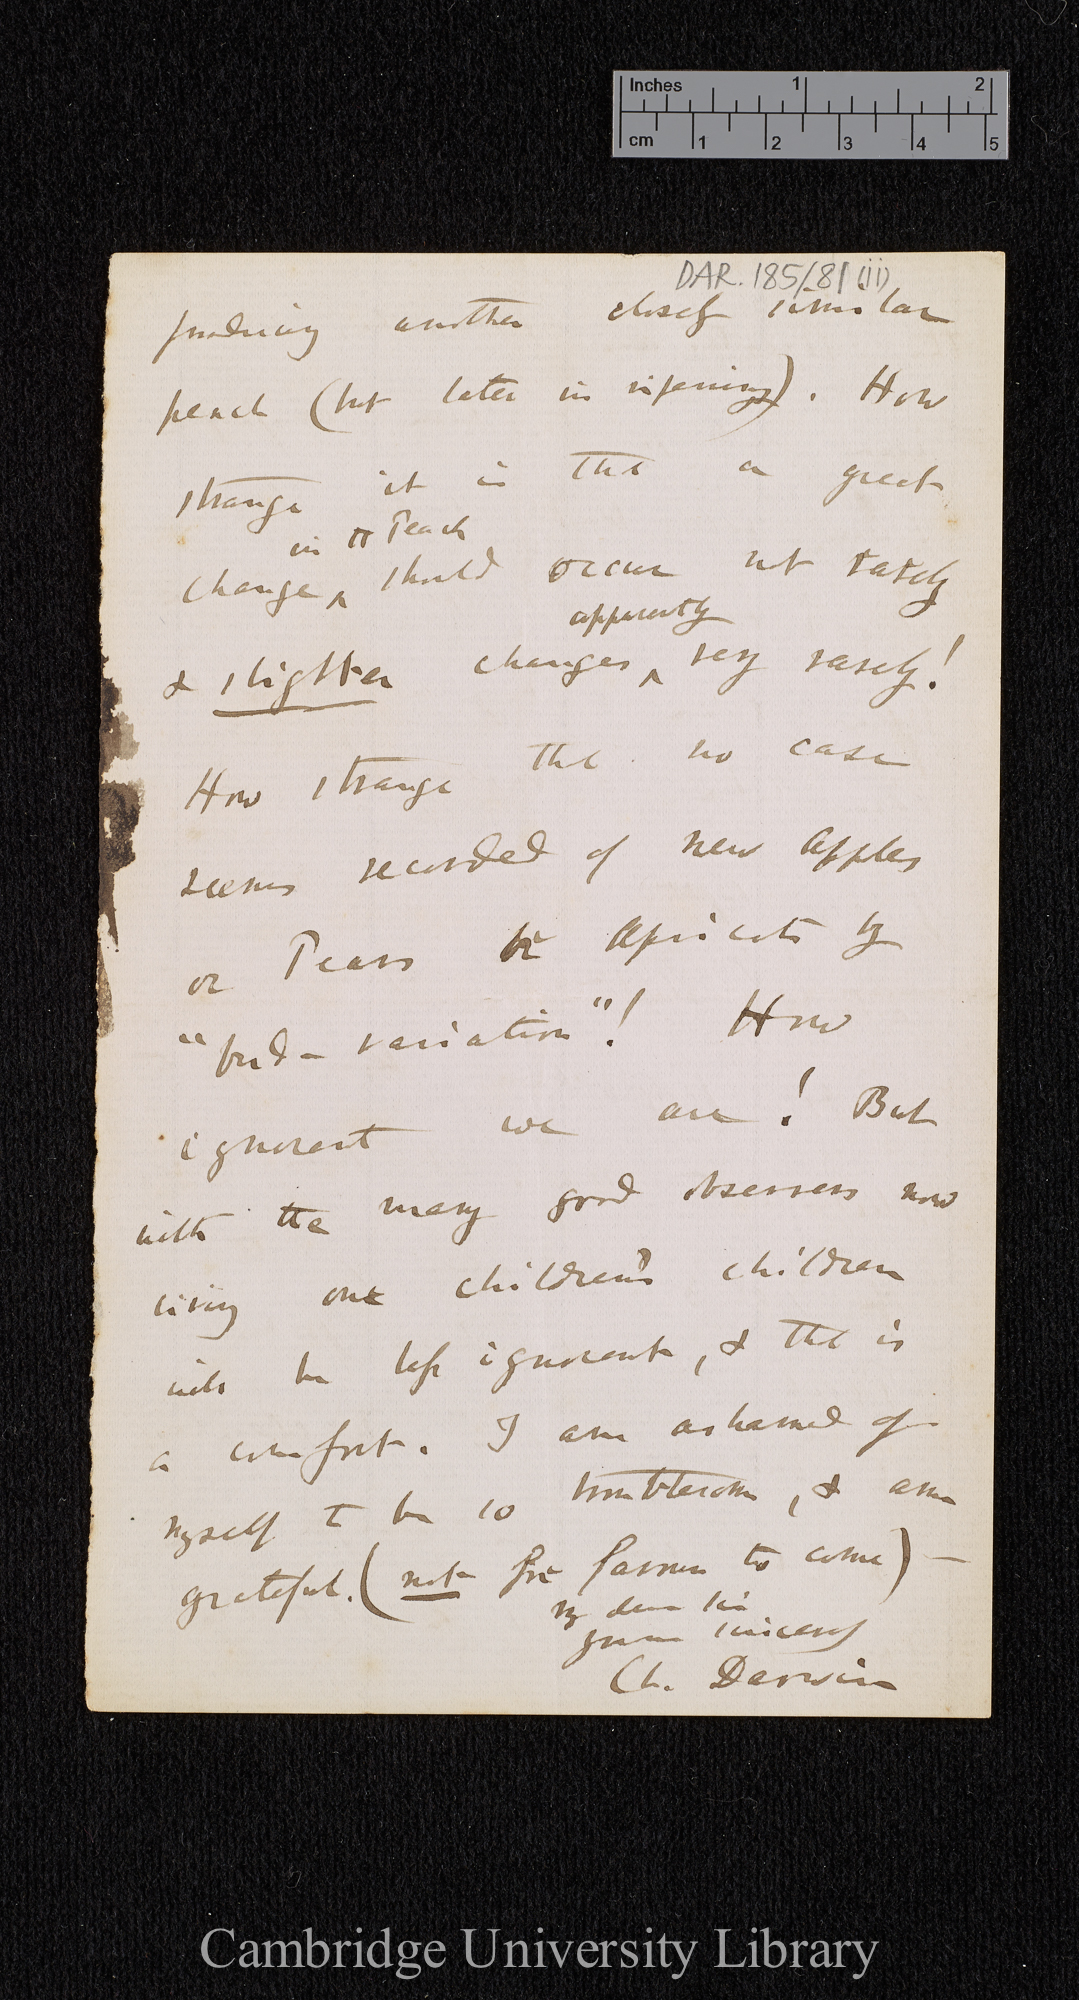 Inches 1 2
cm 1 2 3 4 5
DAR. 185/81 (ii)
producing another closely similar
peach (but later in ripening). How
strange it is that a great
in the Peach
change, should occur not rarely
apparently
& slighter changes, very rarely!
How strange that no case
seems recorded of new apples
or Pears or Apricots by
"bud-variation"! How
ignorant we are! But
with the many good observers now
living our children's children
will be less ignorant, & that is
a comfort. I am ashamed of
myself to be so troublesome, & am
grateful. (not for favours to come) —
My dear Sir
yours sincerely
Ch. Darwin
Cambridge University Library